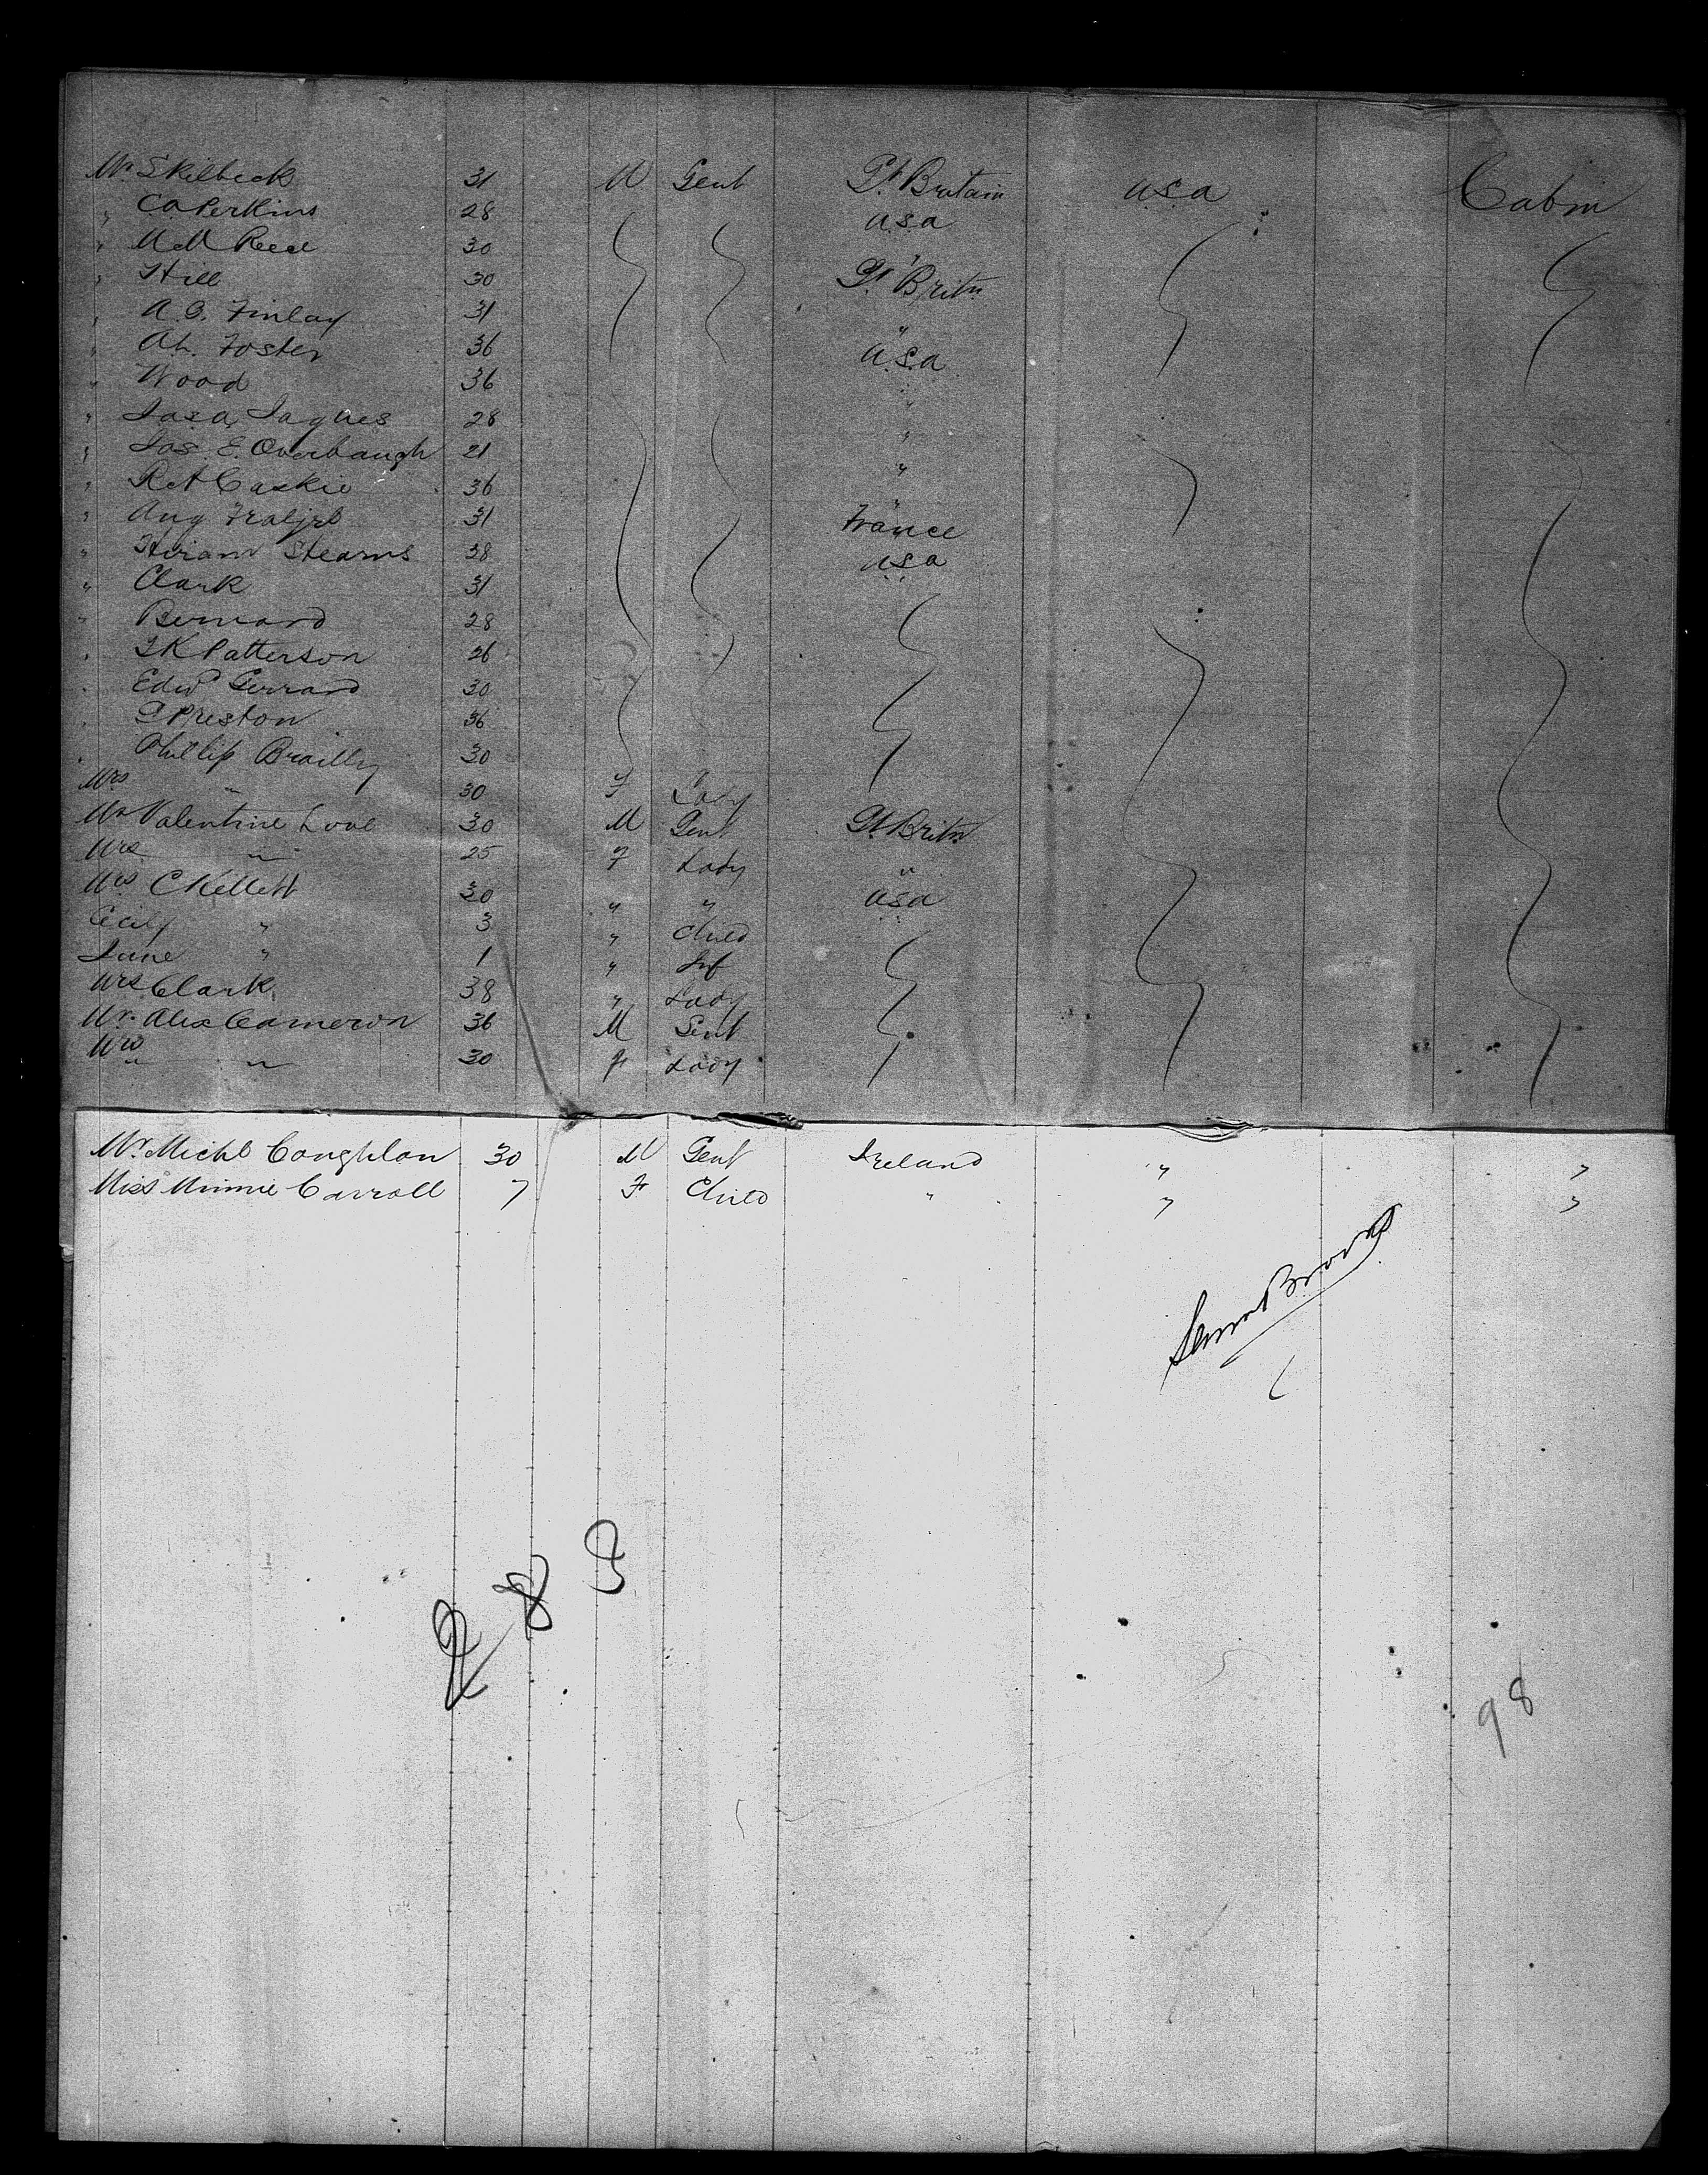 Mr. Skilbeck 31 M Gent Gt. Britain U.S.A Cabin
" C A Perkins 28 U.S.A
" M M Reed 30
" Hill 30 Gt Britn
" A. G. Finlay 31 "
" Ah. Foster 36 U.S.A
" Wood 36 "
" Jasa, Jaques 28 "
" Jas. E. Overbaugh 21 "
" R A Caskie 36 "
" Aug 31 France
" Hiram Stearns 38 U.S.A
" Clark 31
" Bernard 28
" T K Patterson 26
" Edwd Gerrard 30
" G Preston 36
" Phillip Brailly 30
Mrs " 30 F Lady
Mr Valentine Love 30 M Gent Gt Britn
Mrs " 25 F Lady "
Mrs C Kellett 30 " " USA
Cecily " 3 " Child
June " 1 " Inf
Mrs Clark 38 " Lady
Mr. Alex Cameron 36 M Gent
Mrs " " 30 F Lady
Mr. Michl Coughlan 30 M Gent Ireland " "
Miss Minnie Carroll 7 F Child " " "
283
98